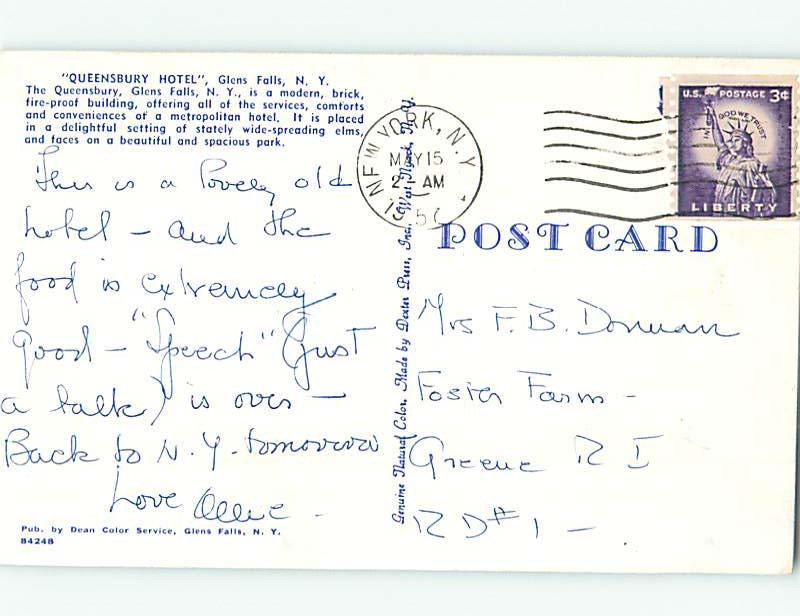 "QUEENSBURY HOTEL", Glens Falls, N. Y.
The Queensbury, Glens Falls, N. Y., is a modern, brick,
fire-proof building, offering all of the services, comforts
and conveniences of a metropolitan hotel. It is placed
in a delightful setting of stately wide-spreading elms,
and faces on a beautiful and spacious park.
This is a lovely old
hotel - and the
food is extremely
good - "Speech" (just
a talk) is over -
Back to N. Y. tomorrow
Love Ollie -
Pub. by Dean Color Service, Glens Falls, N. Y.
84248
Genuine Natural Color. Made by Dexter Press, Inc., West Nyack, N. Y.
NEW YORK, N.Y.
MAY 15
2 AM
57
U.S. POSTAGE 3¢
IN GOD WE TRUST
LIBERTY
POST CARD
Mrs F. B. Donman
Foster Farm -
Greene R I
R D # 1 -